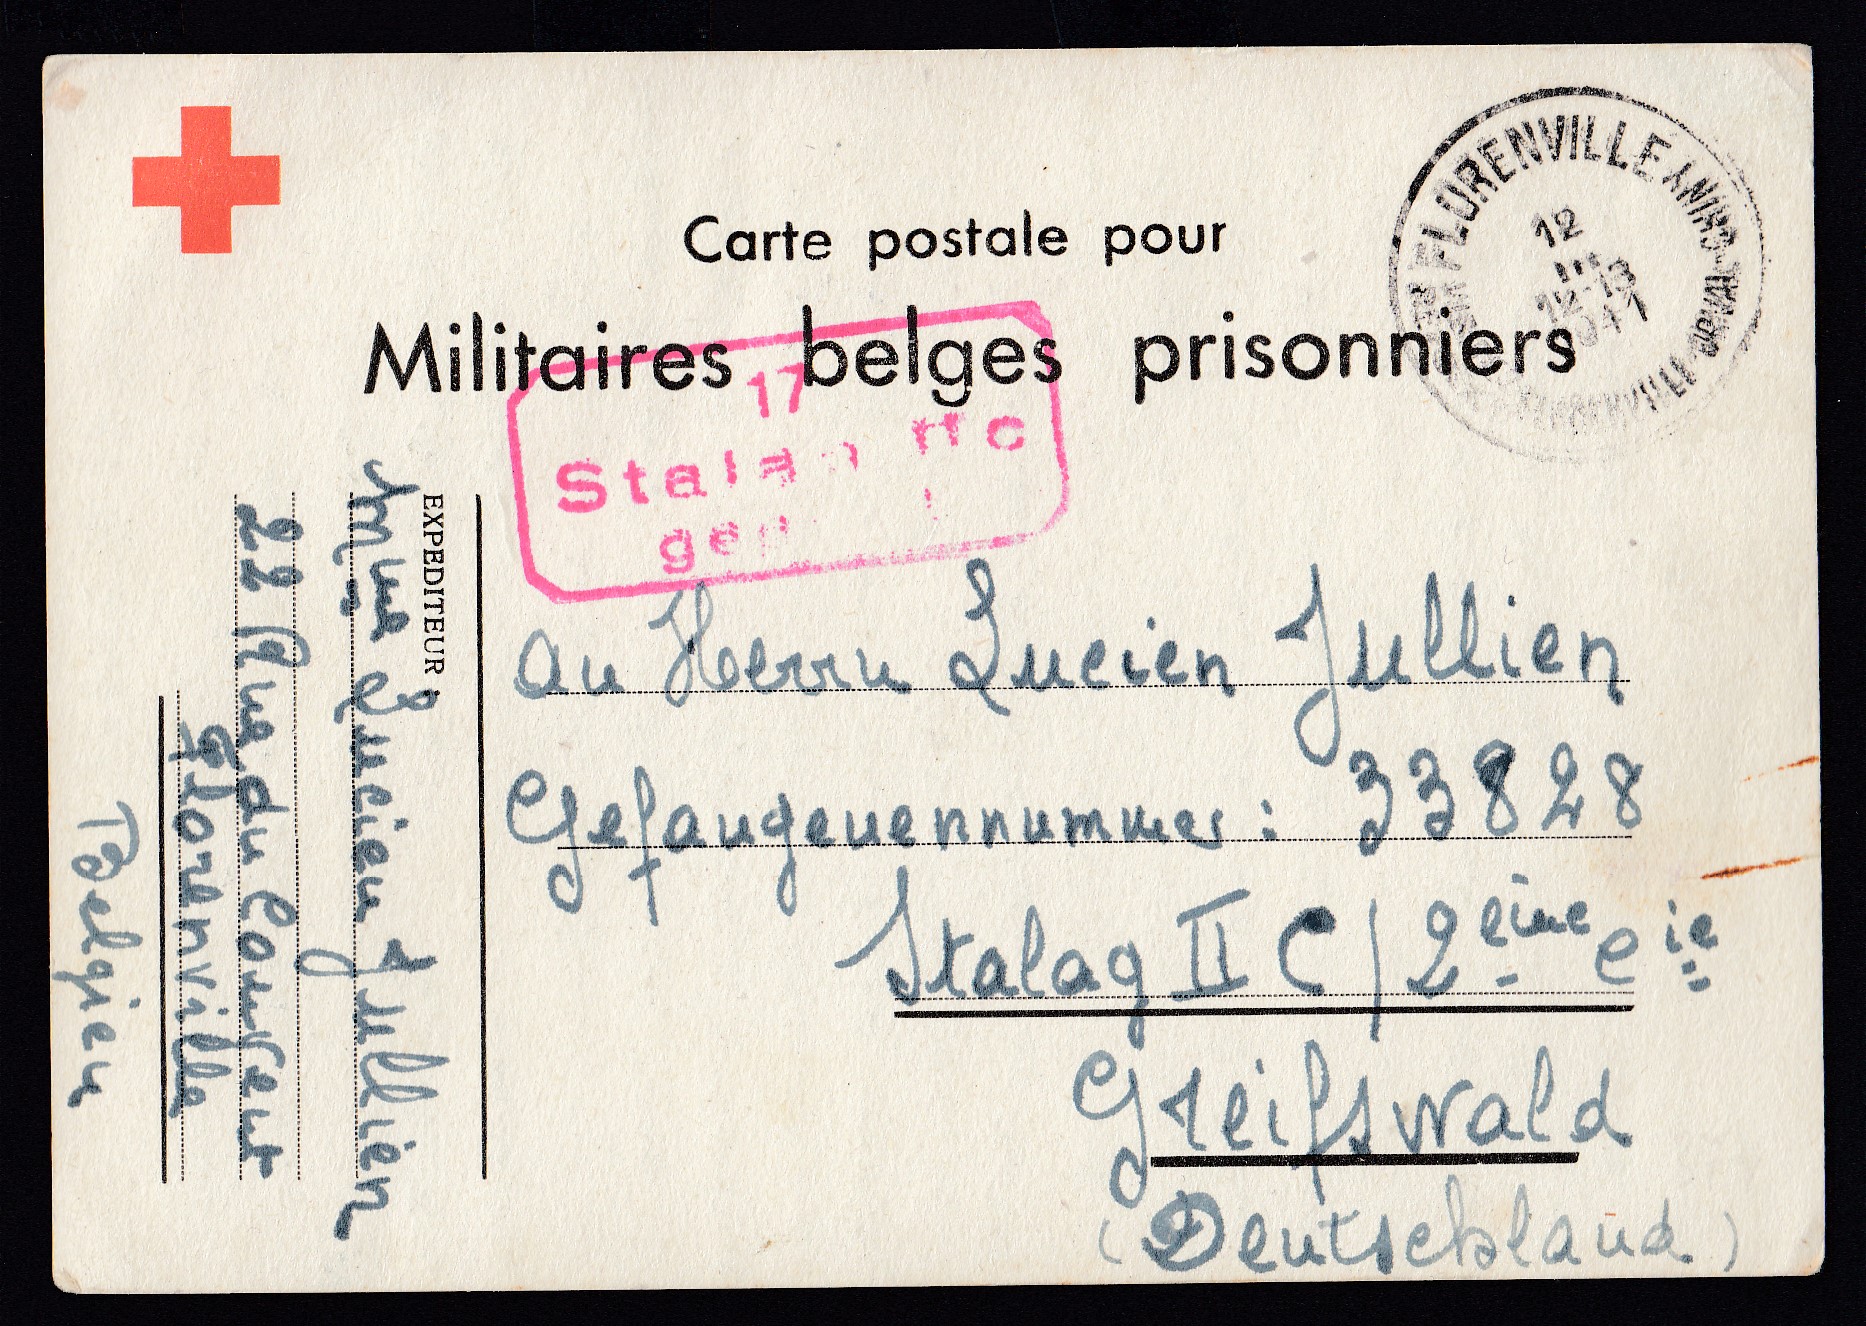 Carte postale pour
Militaires belges prisonniers
FLORENVILLE
12
III
12-13
1941
17
Stalag II C
gep
au Herrn Lucien Jullien
Gefangenennummer: 33828
Stalag II C / 2ème Cie
Greifswald
(Deutschland)
EXPEDITEUR :
Mme Lucien Jullien
22 Rue du
Florenville
Belgien